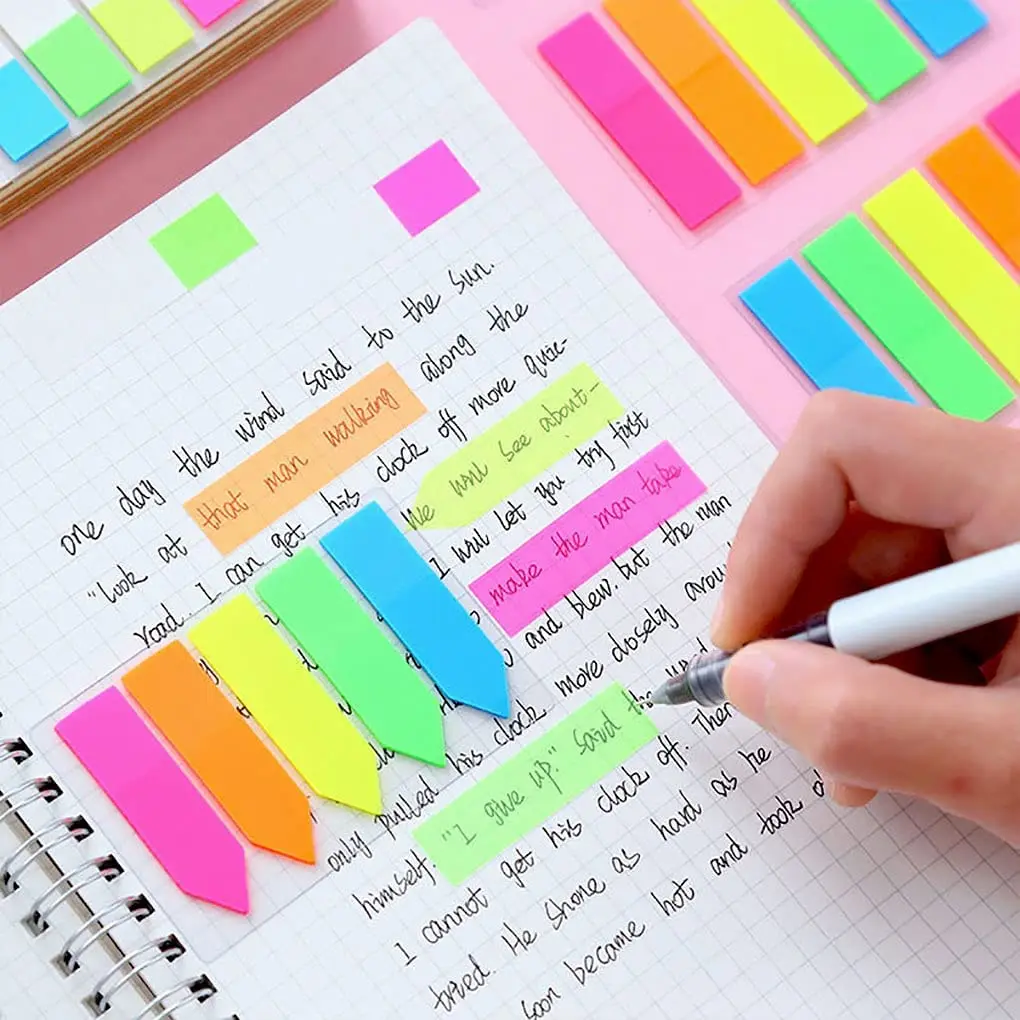 one day the wind said to the sun.
"Look at that man walking along the
road. I can get his clock off more quic-
We will see about-
I will let you try first
make the man take
and blew. but the man
more closely
only pulled his clock
himself. "I give up." Said the
I cannot get his clock off. Then
tried. He Shone as hard as he
Soon became hot and took